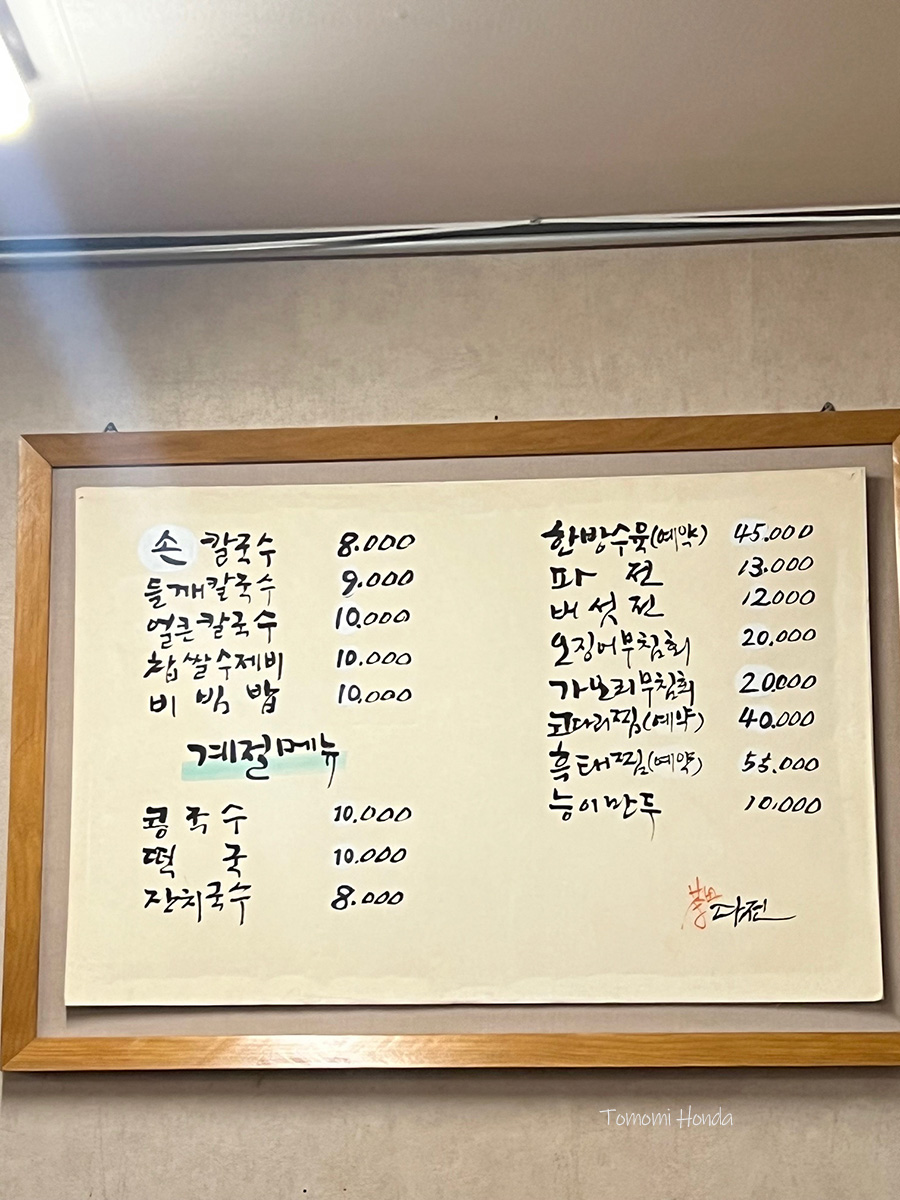 손 칼국수 8.000
들깨칼국수 9.000
얼큰칼국수 10.000
찹쌀수제비 10.000
비빔밥 10.000
계절메뉴
콩국수 10.000
떡국 10.000
잔치국수 8.000
한방수육(예약) 45.000
파전 13.000
버섯전 12000
오징어무침회 20.000
가오리무침회 20.000
코다리찜(예약) 40.000
흑태찜(예약) 55.000
능이만두 10.000
다전
Tomomi Honda